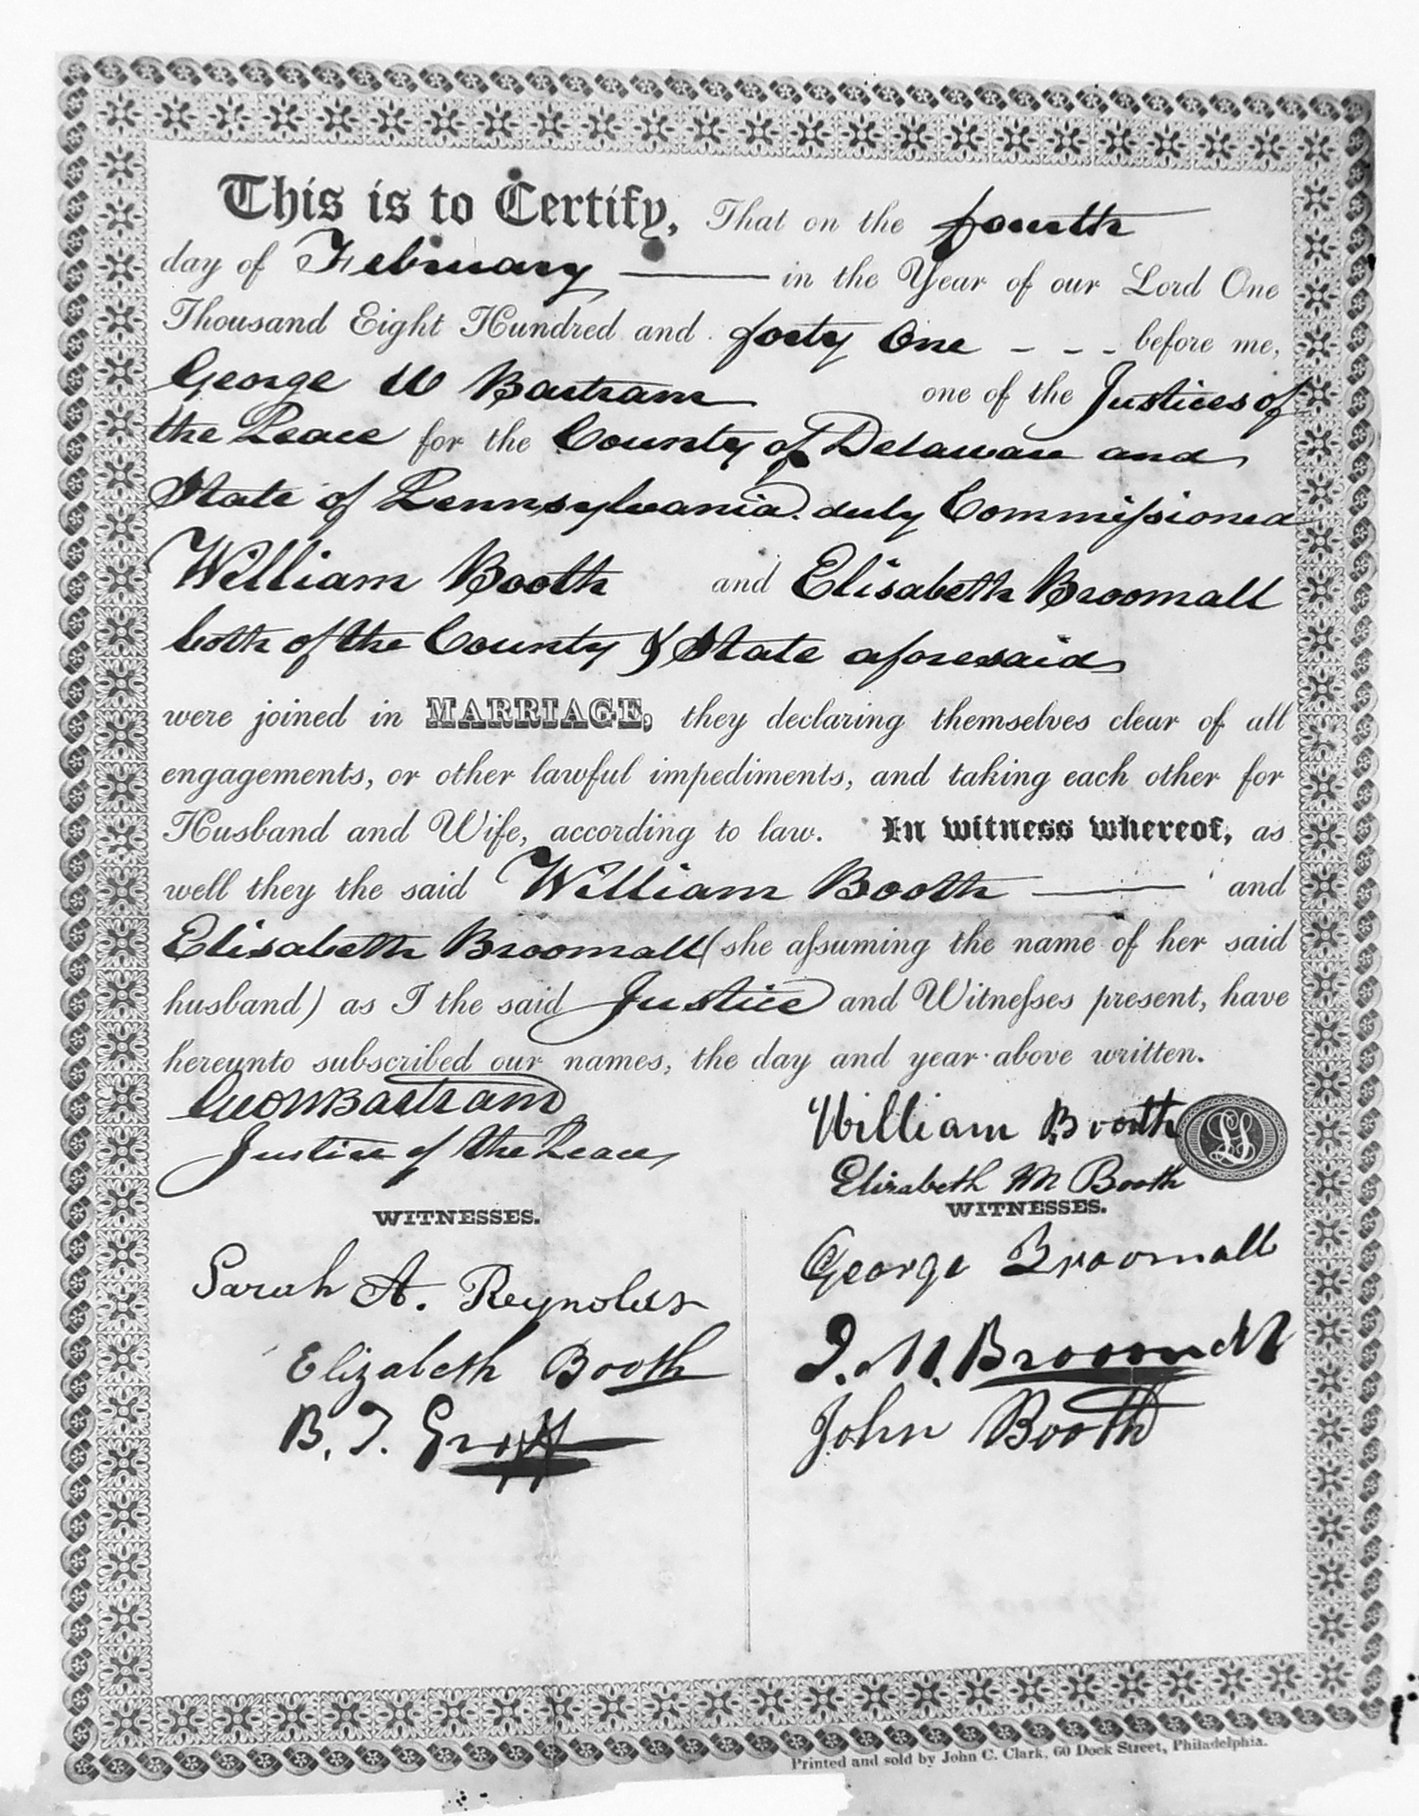 This is to Certify, That on the fourth
day of February in the Year of our Lord One
Thousand Eight Hundred and forty One - - - before me,
George W Bartram one of the Justices of
the Peace for the County of Delaware and
State of Pennsylvania duly Commissioned
William Booth and Elisabeth Broomall
both of the County & State aforesaid
were joined in MARRIAGE, they declaring themselves clear of all
engagements, or other lawful impediments, and taking each other for
Husband and Wife, according to law. In witness whereof, as
well they the said William Booth and
Elisabeth Broomall (she assuming the name of her said
husband) as I the said Justice and Witnesses present, have
hereunto subscribed our names, the day and year above written.
Geo W Bartram
Justice of the Peace
William Booth LS
Elizabeth M Booth
WITNESSES.
Sarah A. Reynolds
Elizabeth Booth
B. T. Groff
WITNESSES.
George Broomall
J. M. Broomall
John Booth
Printed and sold by John C. Clark, 60 Dock Street, Philadelphia.